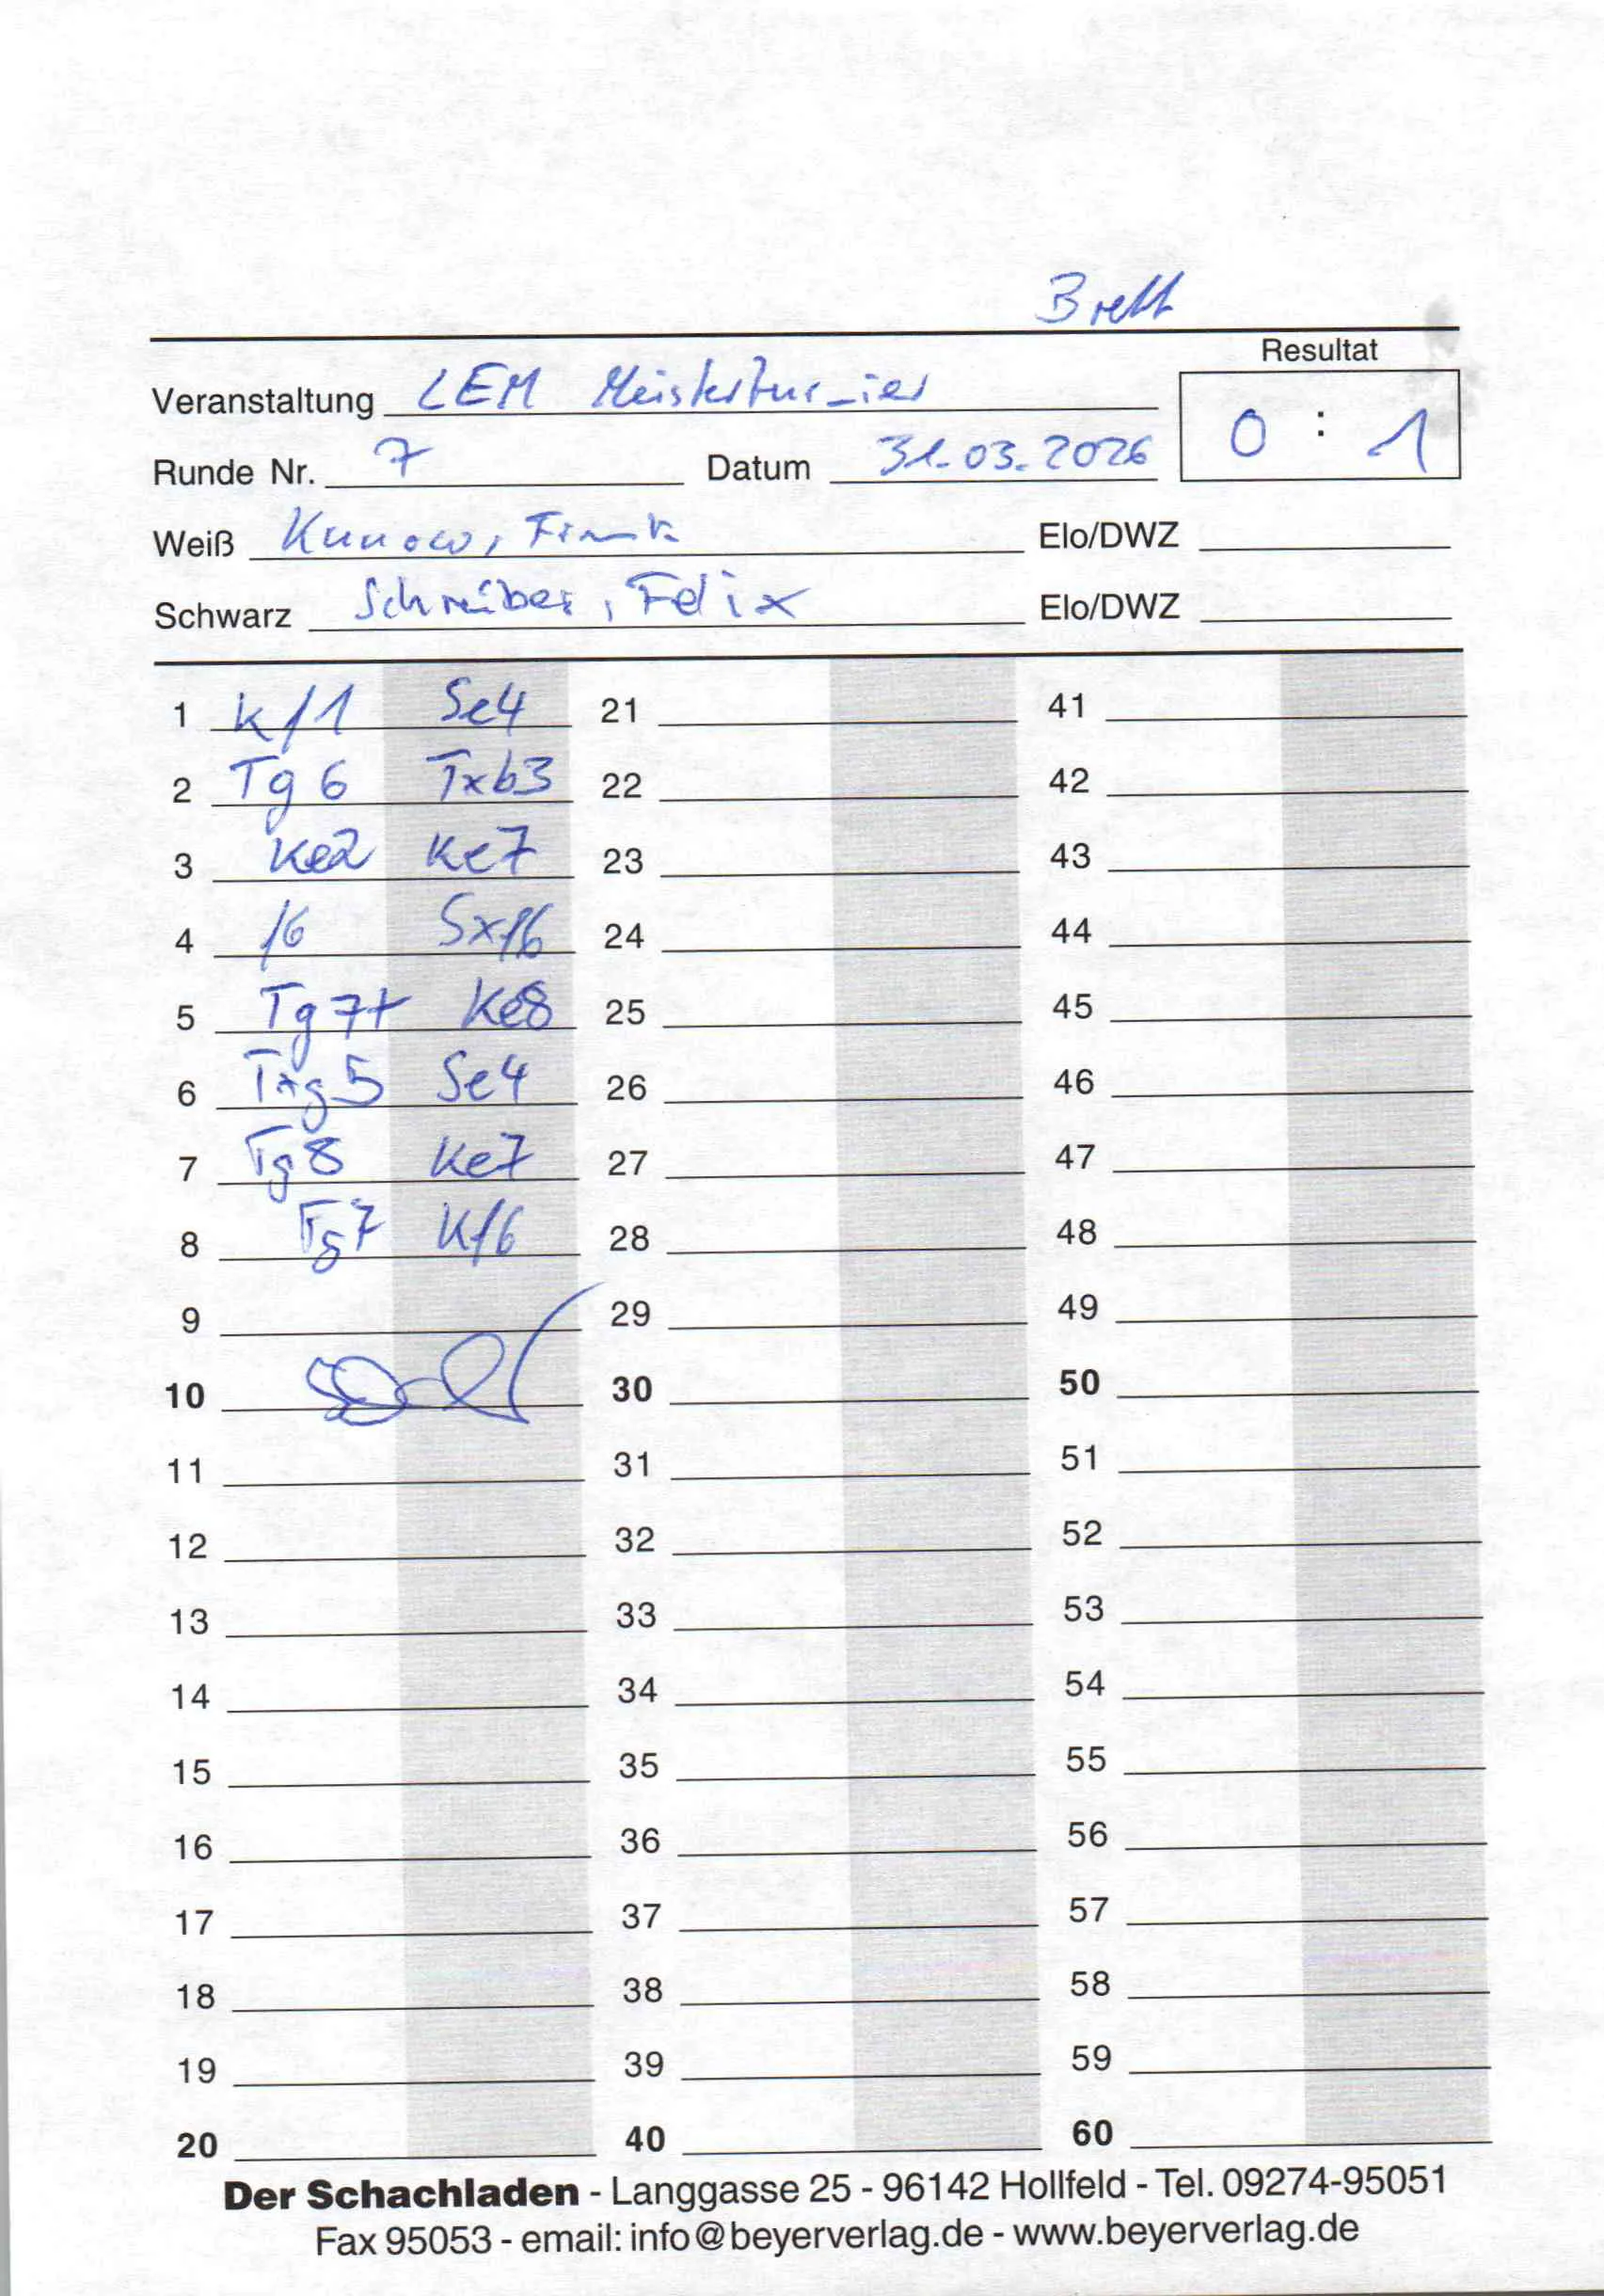 Brett
Resultat
Veranstaltung LEM Meisterturnier
0 : 1
Runde Nr. 7 Datum 31.03.2026
Weiß Kunow, Frank Elo/DWZ
Schwarz Schreiber, Felix Elo/DWZ
1 Kf1 Se4 21 41
2 Tg6 Txb3 22 42
3 Ke2 Ke7 23 43
4 f6 Sxf6 24 44
5 Tg7+ Ke8 25 45
6 Txg5 Se4 26 46
7 Tg8 Ke7 27 47
8 Tg7 Kf6 28 48
9 29 49
10 30 50
11 31 51
12 32 52
13 33 53
14 34 54
15 35 55
16 36 56
17 37 57
18 38 58
19 39 59
20 40 60
Der Schachladen - Langgasse 25 - 96142 Hollfeld - Tel. 09274-95051
Fax 95053 - email: info@beyerverlag.de - www.beyerverlag.de